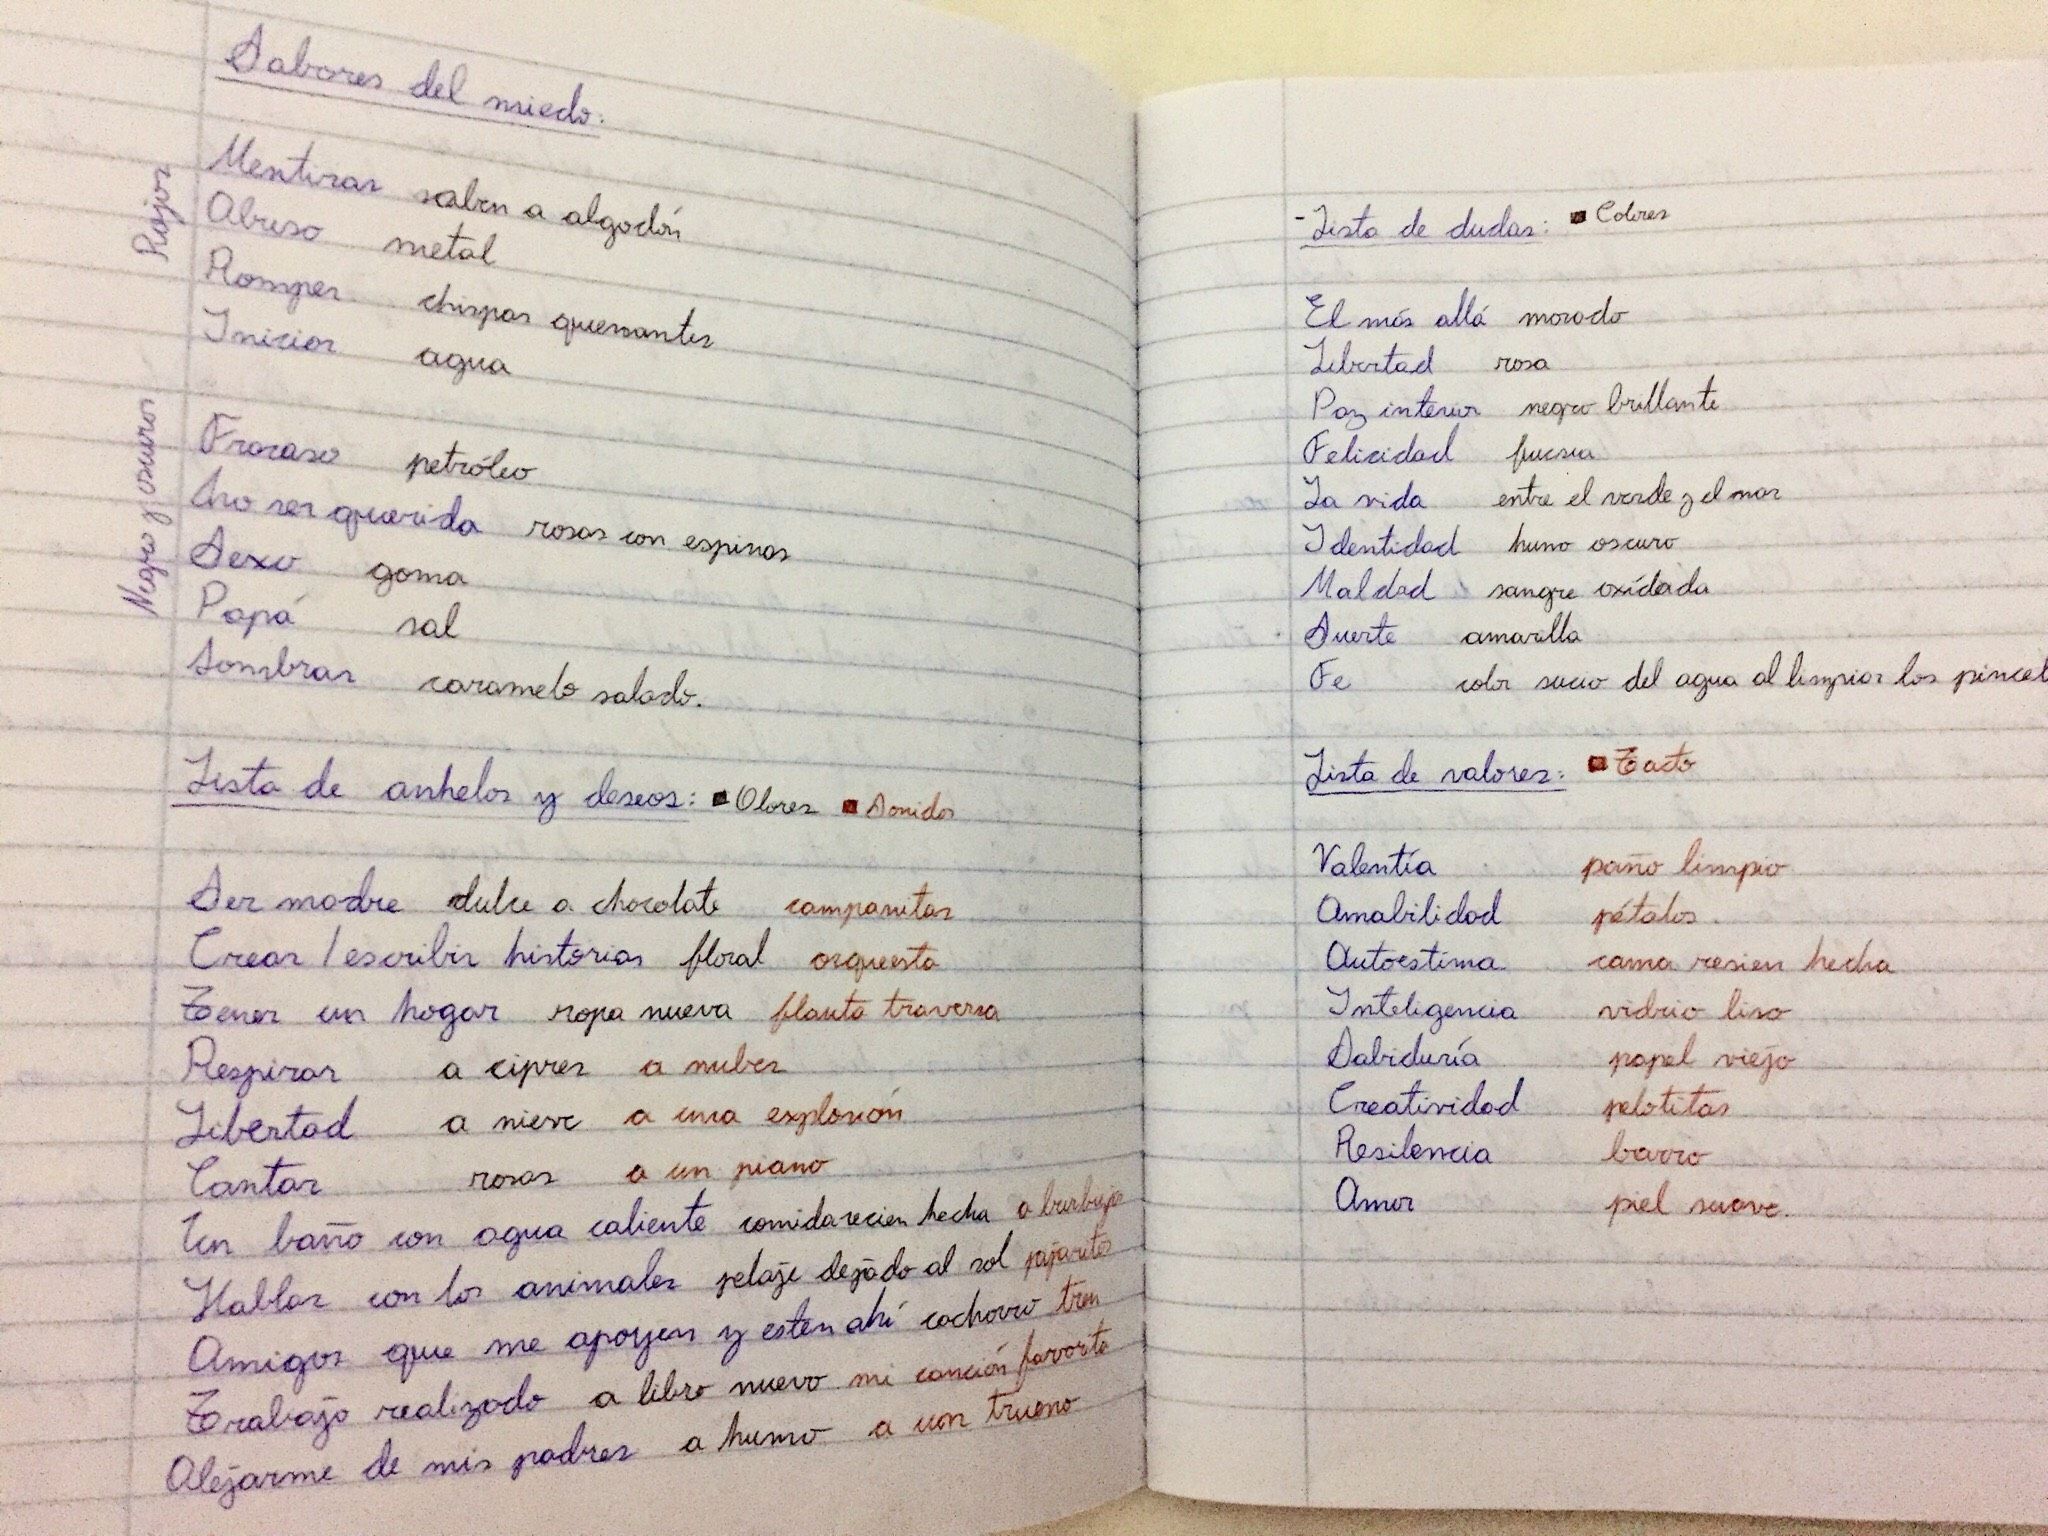 Sabores del miedo:
Rojos
Mentiras saben a algodón
Abuso metal
Romper chispas quemantes
Iniciar agua
Negro y oscuros
Fracaso petróleo
No ser querida rosas con espinas
Sexo goma
Papá sal
Sombras caramelo salado.
Lista de anhelos y deseos: Olores Sonidos
Ser madre dulce a chocolate campanitas
Crear / escribir historias floral orquesta
Tener un hogar ropa nueva flauta traversa
Respirar a cipres a nubes
Libertad a nieve a una explosión
Cantar rosas a un piano
Un baño con agua caliente comida recien hecha a burbujas
Hablar con los animales pelaje dejado al sol pajaritos
Amigos que me apoyen y esten ahí cachorro tren
Trabajo realizado a libro nuevo mi canción favorita
Alejarme de mis padres a humo a un trueno
- Lista de dudas: Colores
El más allá morado
Libertad rosa
Paz interior negro brillante
Felicidad fucsia
La vida entre el verde y el mar
Identidad humo oscuro
Maldad sangre oxidada
Suerte amarilla
Fe color sucio del agua al limpiar los pincel
Lista de valores: Tacto
Valentía paño limpio
Amabilidad pétalos.
Autoestima cama resien hecha
Inteligencia vidrio liso
Sabiduría papel viejo
Creatividad pelotitas
Resilencia barro
Amor piel suave.